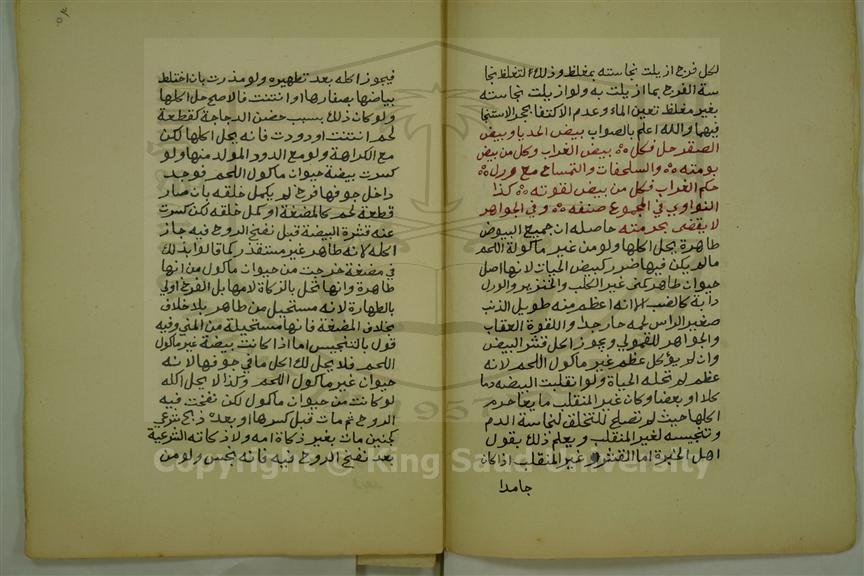 لكل فرج ازيلت نجاسته بمغلظ وذلك لتغلظ نجا
سة الفرج بما ازيلت به ولو ازيلت نجاسته
بغير مغلظ تعين الماء وعدم الاكتفا بحجر الاستنجا
فيهما والله اعلم بالصواب بيض الحدا وبيض
الصقر حل فكل بيض الغراب وكل من بيض
بومته والسلحفات والتمساح مع ورل
حكم الغراب فكل من بيض لقوته كذا
النواوي في المجموع صنفه وفي الجواهر
لا يقضى بحرمته حاصله ان جميع البيوض
طاهرة يحل اكلها ولو من غير ماكولة اللحم
مالم يكن فيها ضرر كبيض الحيات لانها اصل
حيوان طاهر كمنى غير الكلب والخنزير والورل
دابة كالضب الا انه اعظم منه طويل الذنب
صغير الراس لحمه حار جدا واللقوة العقاب
والجواهر للقمولي ويجوز اكل قشر البيض
وان لم يؤكل عظم غير ماكول اللحم لانه
عظم لم تحله الحياة ولو انقلبت البيضه دما
كلا او بعضا وكان غير المنقلب مايعا حرم
اكلها حيث لم تصلح للتخلق لنجاسة الدم
وتنجيسه لغير المنقلب ويعلم ذلك بقول
اهل الخبرة اما القشر وغير المنقلب اذا كان
جامدا
فيجوز اكله بعد تطهيره ولو مذرت بان اختلط
بياضها بصفارها او انتنت فالاصح حل اكلها
ولو كان ذلك بسبب حضن الدجاجة كقطعة
لحم انتنت او دودت فانه يحل اكلها لكن
مع الكراهة ولو مع الدود المولد منها ولو
كسرت بيضة حيوان ماكول اللحم فوجد
داخل جوفها فرخ لم يكمل خلقه بان صار
قطعة لحم كالمضغة او كمل خلقه لكن كسرت
عنه قشرة البيضة قبل نفخ الروح فيه جاز
اكله لانه طاهر غير مستقذر كما قالوا بذلك
في مضغة خرجت من حيوان ماكول من انها
طاهرة وانها تحل بالزكاة لامها بل الفرخ اولي
بالطهارة لانه مستحيل من طاهر بلا خلاف
بخلاف المضغة فانها مستحيلة من المني وفيه
قول بالتنجيس اما اذا كانت بيضة غير ماكول
اللحم فلا يحل لك اكل ما في جوفها لانه
حيوان غير ماكول اللحم وكذا لا يحل اكله
لو كانت من حيوان ماكول لكن نفخت فيه
الروح ثم مات قبل كسرها او بعده ذبح شرعي
كجنين مات بغير ذكاة امه ولا ذكاته الشرعية
بعد نفخ الروح فيه فانه نجس ولو من
Copyright © King Saud University
1957